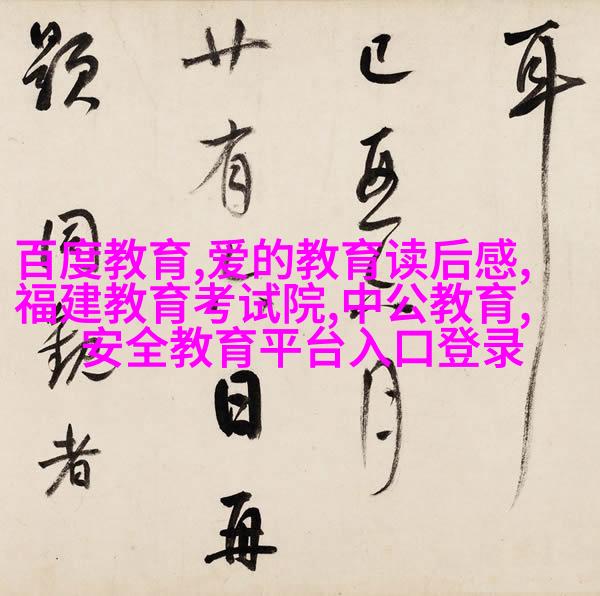 百度教育,爱的教育读后感,
福建教育考试院,中公教育,
安全教育平台入口登录
耳
己亥月
廿有日再
題同觀者